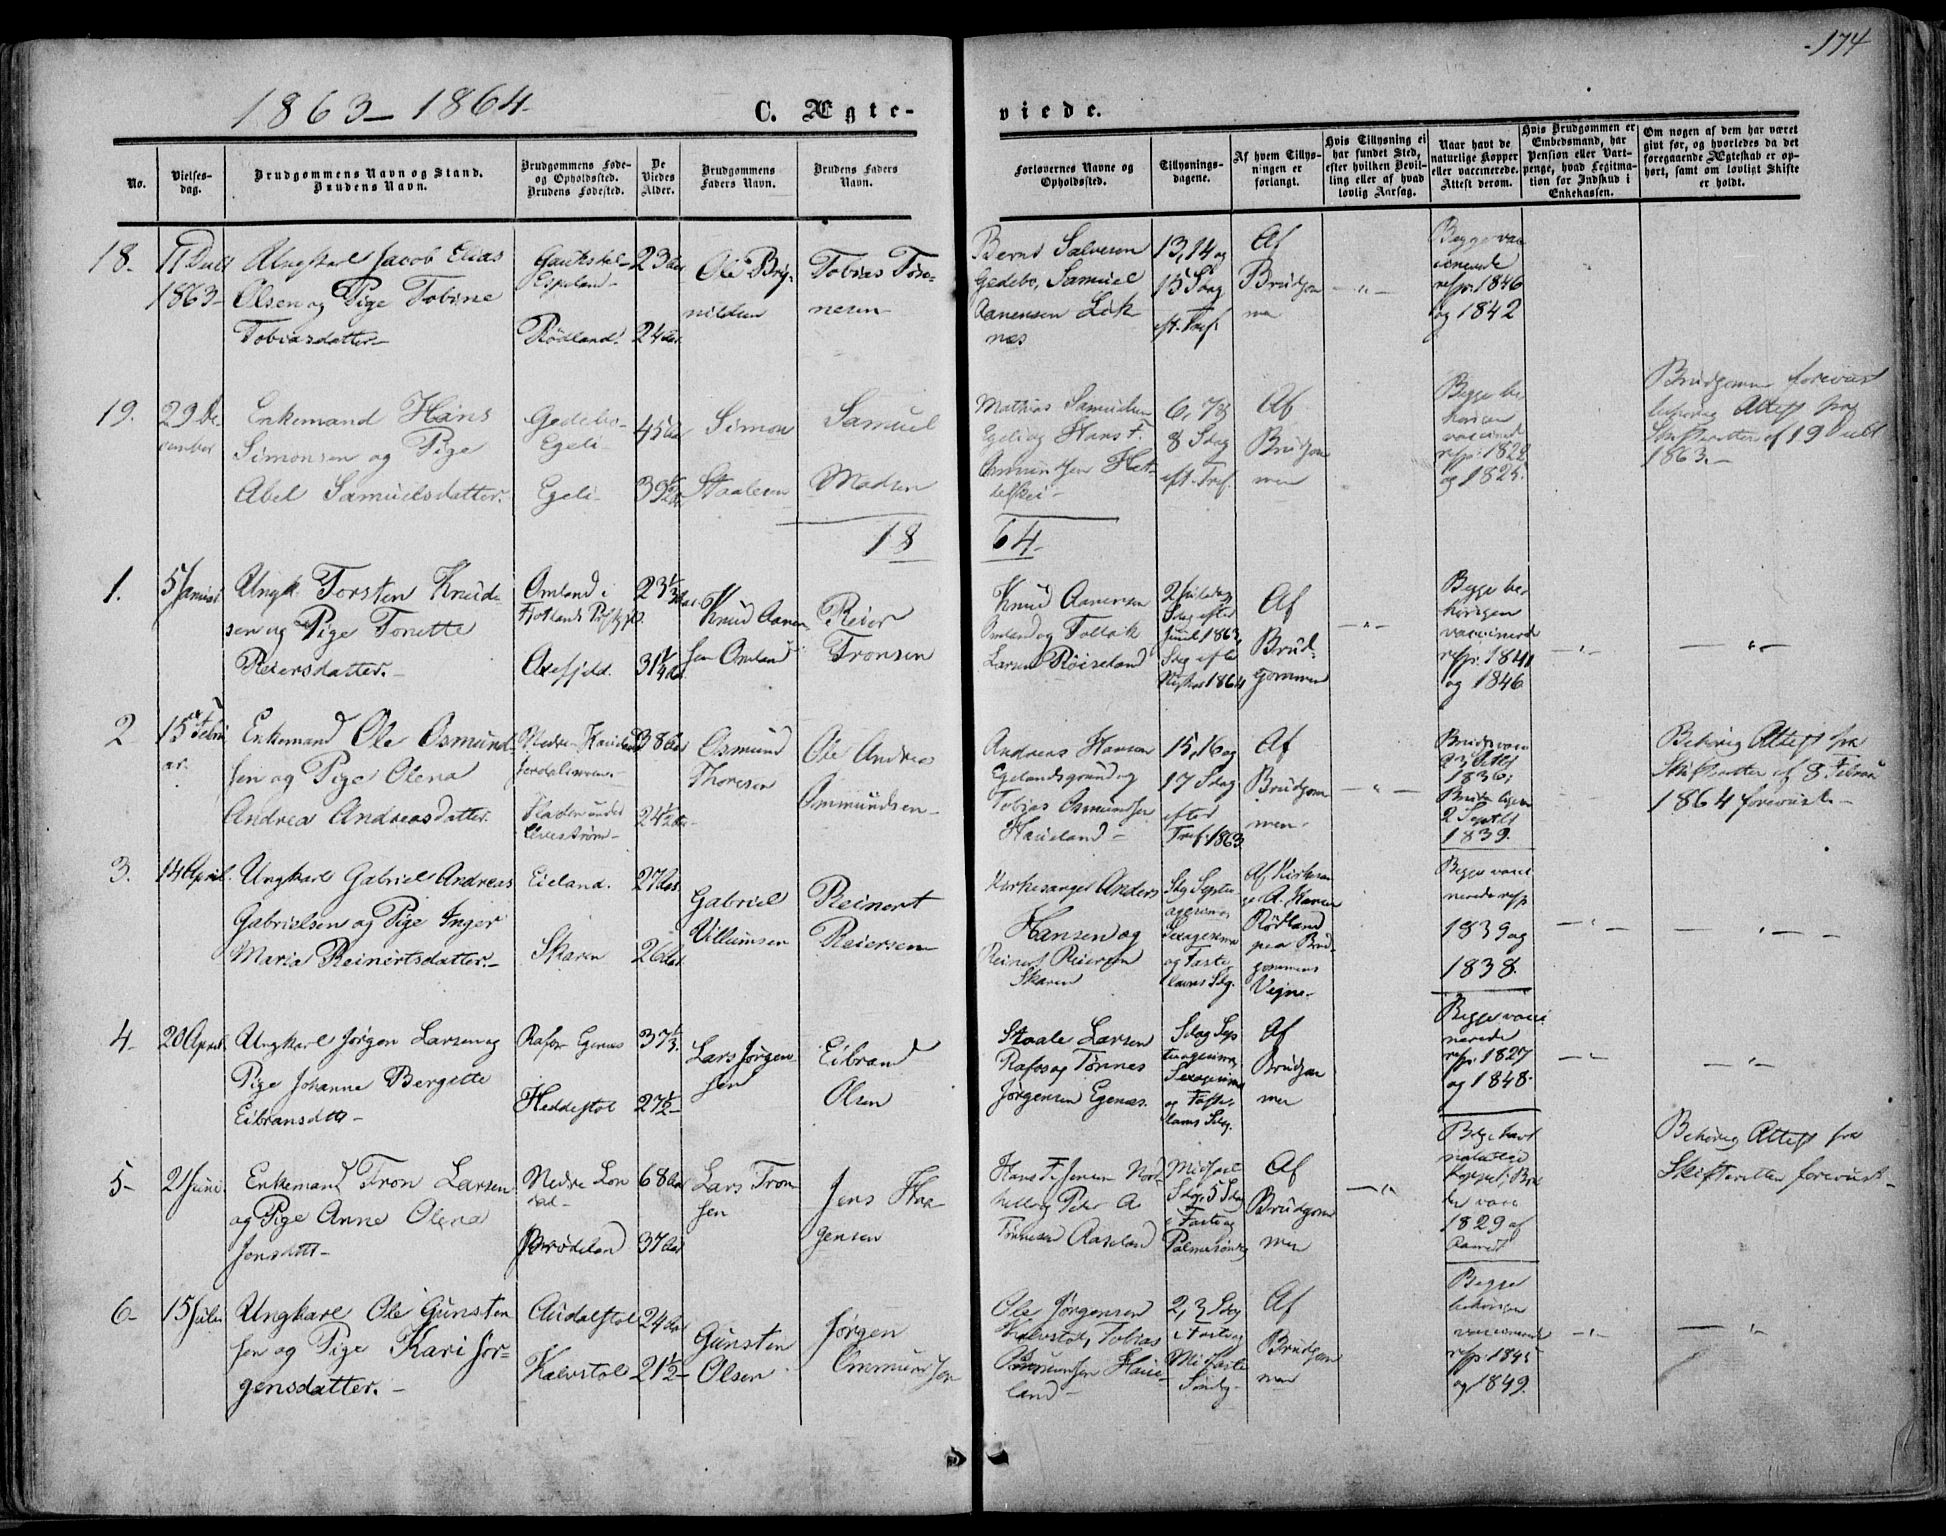 174
1863-1864
C. Ægteviede.
No.
Vielsesdag.
Brudgommens Navn og Stand.
Brudens Navn.
Brudgommens Føde- og Opholdssted.
Brudens Fødested.
De Viedes Alder.
Brudgommens Faders Navn.
Brudens Faders Navn.
Forlovernes Navne og Opholdssted.
Tillysningsdagene.
Af hvem Tillysningen er forlangt.
Hvis Tillysning ei har fundet Sted, efter hvilken Bevilling eller af hvad lovlig Aarsag.
Naar havt de naturlige Kopper eller vaccinerede. Attest derom.
Hvis Brudgommen er Embedsmand, har Pension eller Vartpenge, hvad Legitimation for Indskud i Enkekassen.
Om nogen af dem har været gift før, og hvorledes da det foregaaende Ægteskab er ophørt, samt om lovligt Skifte er holdt.
18. 1863 Ungkarl Jacob Elias
Olsen og Pige Tobine
Tobiasdatter
Espeland
Rødland
23 Aar
24 Aar
Ole Brynildsen
Tobias Tønnesen
Bernt Salvesen
Gedebø, Samuel
Aanensen Liknæs
13, 14 og
15 Sdag
eft. Tref.
Af
Brudgommen
Begge vaccinerede
resp. 1846
og 1842
19. 29 December
Enkemand Hans
Simonsen og Pige
Abel Samuelsdatter.
Gedebø
Egeli
Egeli
45 Aar
39½ Aar
Simon
Staalesen
Samuel
Madsen
Mathias Samuelsen
Egeli og Hans F.
Osmundsen
6, 7 og
8 Sdag
eft. Tref.
Af
Brudgommen
Begge behørigen
vaccinerede
resp. 1822
og 1825.
Brudgommen forevist
behørig Attest fra
Skifteretten af 19
1863.
1864.
1. 5 Januar
Ungk. Torsten Knudsen
og Pige Tonette
Reiersdatter.
Omland i
Fjotlands
Oxefjeld.
23⅓ Aar
31¼ Aar
Knud Aanensen
Omland
Reier
Tronsen
Knud Aanensen
Omland og Tollak
Larsen Røiseland
Sdag efter
Juul 1863,
Sdag efter
Nytaar 1864
Af
Brudgommen
Begge behørigen
vaccinerede
resp. 1841
og 1846
2 15 Februar.
Enkemand Ole Osmundsen
og Pige Olena
Andrea Andreasdatter.
38 Aar
24½ Aar
Osmund
Thoresen
Ole Andrea
Ommundsen
Andreas Hansen
Egelandsgrund og
Tobias Osmundsen
Haueland
15, 16 og
17 Sdag
efter
Tref. 1863
Af
Brudgommen
1836,
2 Septbr
1839.
Behørig Attest fra
Skifteretten af 8 Februar
1864 forevist.
3. 14 April.
Ungkarl Gabriel Andreas
Gabrielsen og Pige Inger
Maria Reinertsdatter.
Eieland.
Skaren
27 Aar
26 Aar
Gabriel
Villumsen
Reinert
Reiersen
Kirkesanger Anders
Hansen og
Reinert Reiersen
Skaren
Sdg Septuagesima,
Sexagesima
og Fastelavns Sdg.
Af Kirkesanger
A. Hansen
Rødland
paa Brudgommens
Vegne.
Begge vaccinerede
resp.
1839 og
1838.
4. 20 April.
Ungkarl Jørgen Larsen og
Pige Johanne Bergitte
Eibransdtr
Rafos
Heddestøl
37⅓
27½
Lars Jørgensen
Eibrand
Olsen
Staale Larsen
Rafos og Tønnes
Jørgensen Egenæs.
Sdag Septuagesima,
Sexagesima
og Fastelavns Sdg.
Af
Brudgommen
Begge vaccinerede
resp. 1827
og 1848.
5 2 Juni.
Enkemand Tron Larsen
og Pige Anne Olena
Jensdatt
Nedre
Brødeland
68 Aar
37 Aar
Lars Tronsen
Jens Haagensen
Hans F. Jensen
og Peter A
Tønnesen Aaseland
Midfaste
Sdg, 5 Sdag
i Faste og
Palmesøndag
Af
Brudgommen
1829 af
Behørig Attest fra
Skifteretten forevist.
6 15 Julii
Ungkarl Ole Gunstensen
og Pige Kari Jørgensdatter.
Audalstøl
Kalvstøl
24 Aar
21½
Gunsten
Olsen
Jørgen
Ommundsen
Ole Jørgensen
Kalvstøl, Tobias
Osmundsen Haueland
2, 3 Sdg
i Faste og
Midfaste
Søndg
Af
Brudgommen
Begge
behørigen
vaccinerede
resp. 1845
og 1849.